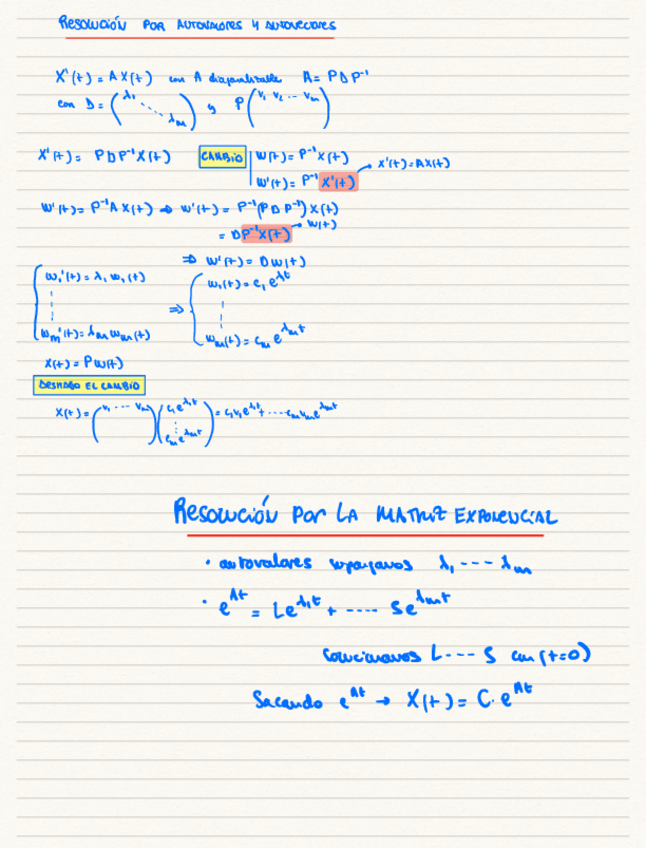 Resolución por autovalores y autovectores
X'(t) = A X(t) con A diagonalizable A = P D P⁻¹
con D = (λ₁ ⋱ λₘ) y P (v₁ v₂ ... vₘ)
X'(t) = P D P⁻¹ X(t) CAMBIO W(t) = P⁻¹ X(t)
W'(t) = P⁻¹ X'(t) → X'(t) = A X(t)
W'(t) = P⁻¹ A X(t) ⇒ W'(t) = P⁻¹ (P D P⁻¹) X(t)
= D P⁻¹ X(t) → W(t)
⇒ W'(t) = D W(t)
w₁'(t) = λ₁ w₁(t) ⇒ w₁(t) = c₁ e^λt
wₘ'(t) = λₘ wₘ(t) wₘ(t) = cₘ e^λₘt
X(t) = P W(t)
DESHAGO EL CAMBIO
X(t) = (v₁ ... vₘ) (c₁e^λ₁t ⋮ cₘe^λₘt) = c₁v₁e^λ₁t + ... cₘvₘe^λₘt
Resolución por la matriz exponencial
• autovalores λ₁ --- λₘ
• e^At = Le^λ₁t + ---- Se^λₘt
L --- S con (t=0)
Sacando e^At → X(t) = C · e^At